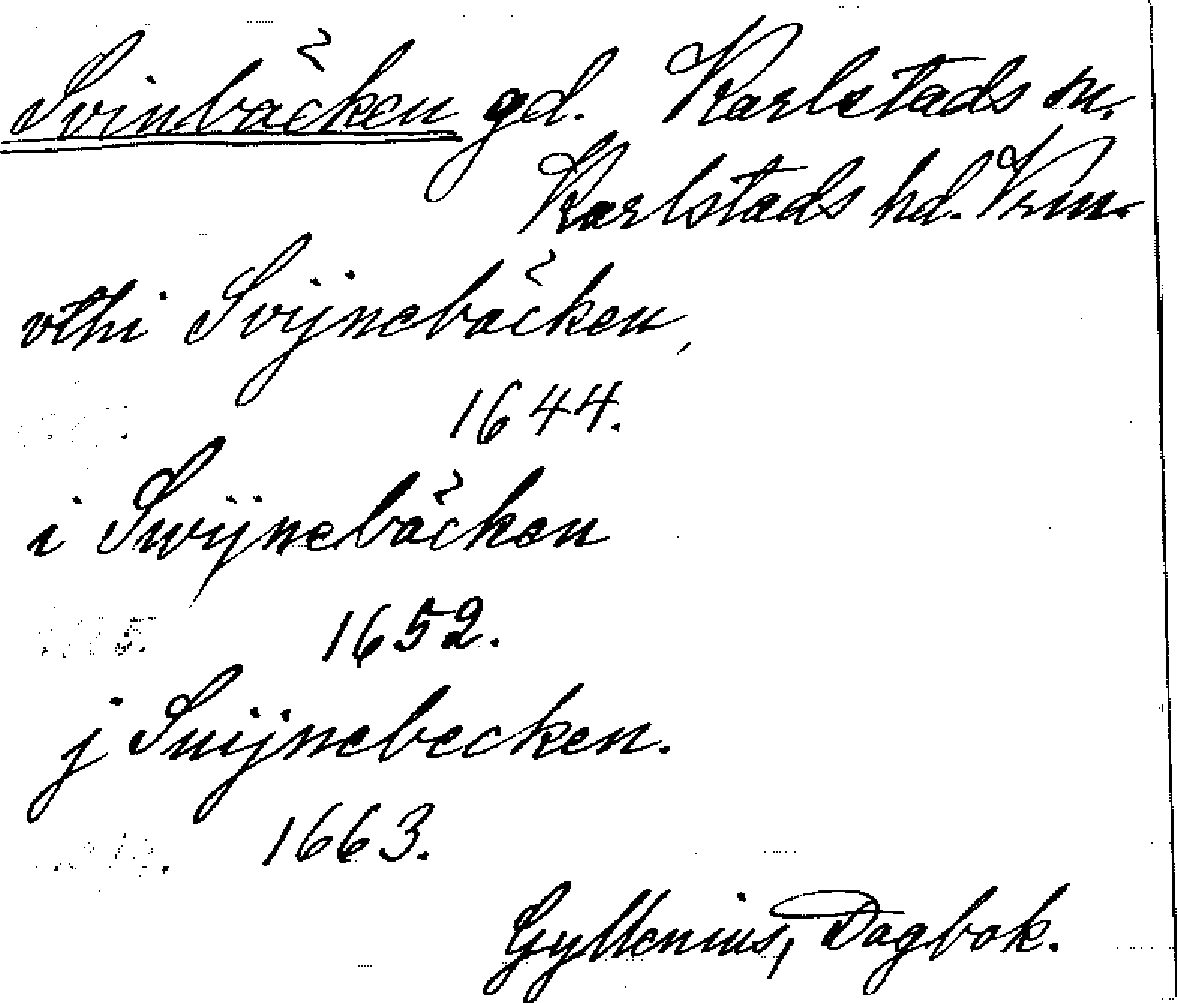 Svinbäcken gd. Karlstads sn.
Karlstads hd. Vrm.
vthi Svijnebäcken,
1644.
i Swijnebäcken
1652.
j Suijnebecken.
1663.
Gyllenius, Dagbok.